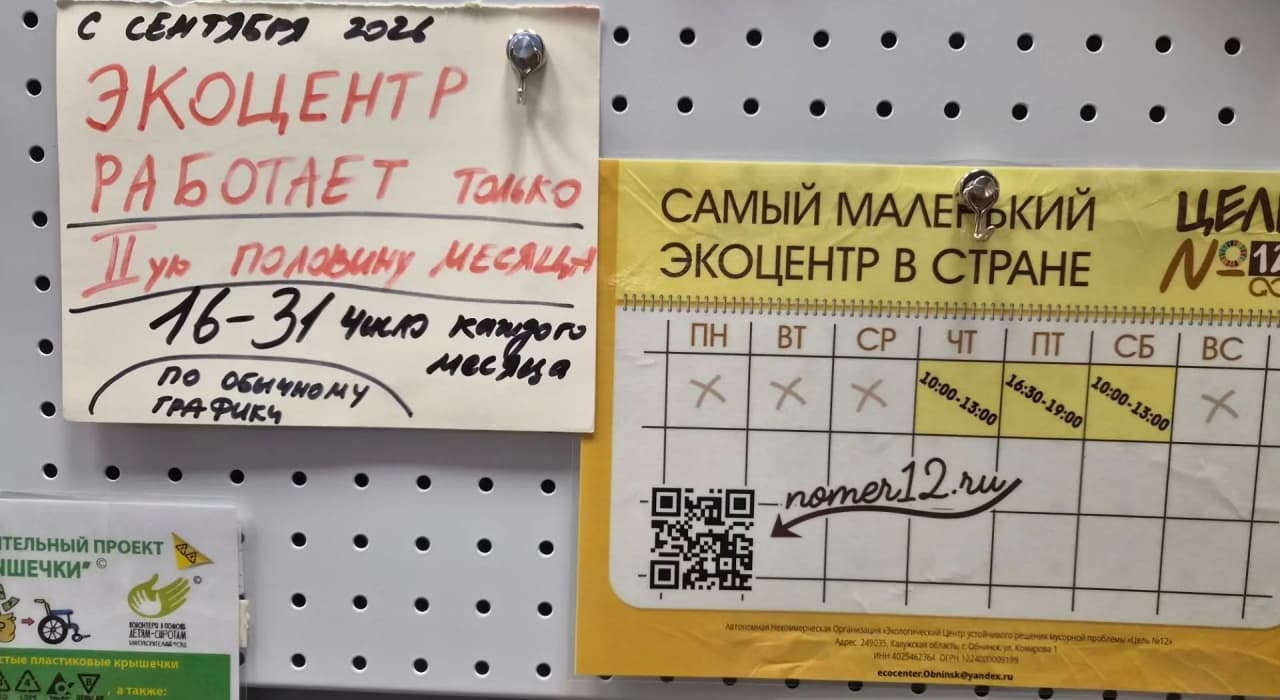 С СЕНТЯБРЯ 2026
ЭКОЦЕНТР
РАБОТАЕТ ТОЛЬКО
IIую ПОЛОВИНУ МЕСЯЦА
16-31 число каждого
месяца
ПО ОБЫЧНОМУ
ГРАФИКУ
САМЫЙ МАЛЕНЬКИЙ
ЭКОЦЕНТР В СТРАНЕ
ЦЕЛ
№12
ПН ВТ СР ЧТ ПТ СБ ВС
10:00-13:00 16:30-19:00 10:00-13:00
nomer12.ru
Автономная Некоммерческая Организация «Экологический Центр устойчивого решения мусорной проблемы «Цель №12»
Адрес: 249035, Калужская область, г. Обнинск, ул. Комарова 1
ИНН 4025462364 ОГРН
ecocenter.Obninsk@yandex.ru
ИТЕЛЬНЫЙ ПРОЕКТ
ЫШЕЧКИ" ©
ВОЛОНТЕРЫ В ПОМОЩЬ
ДЕТЯМ-СИРОТАМ
стые пластиковые крышечки
, а также: